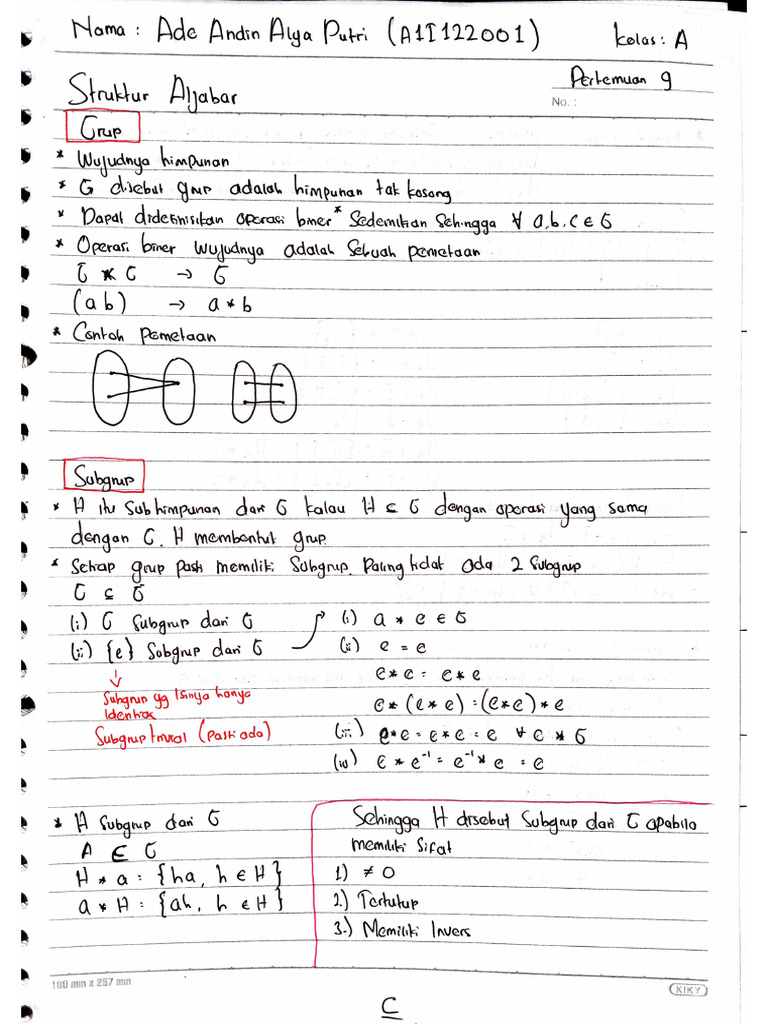 Nama : Ade Andin Alya Putri (A1I122001)
Kelas : A
Pertemuan 9
No. :
Struktur Aljabar
Grup
* Wujudnya himpunan
* G disebut grup adalah himpunan tak kosong
* Dapat didefinisikan operasi biner * Sedemikian Sehingga ∀ a,b,c ∈ G
* Operasi biner Wujudnya adalah Sebuah pemetaan
G * G → G
(a b) → a * b
* Contoh pemetaan
Subgrup
* H itu Sub himpunan dari G kalau H ⊆ G dengan operasi yang sama
dengan G. H membentuk grup.
* Setiap grup pasti memiliki Subgrup. Paling tidak ada 2 Subgrup
G ⊆ G
(i) G Subgrup dari G
(ii) {e} Subgrup dari G
↓
Subgrup yg Isinya hanya
Identitas
Subgrup trivial (pasti ada)
(i) a * e ∈ G
(ii) e = e
e * e = e * e
e * (e * e) = (e * e) * e
(iii) e * e = e * e = e ∀ e * G
(iv) e * e⁻¹ = e⁻¹ * e = e
* H Subgrup dari G
A ∈ G
H * a : {ha, h ∈ H}
a * H : {ah, h ∈ H}
Sehingga H disebut Subgrup dari G apabila
memiliki Sifat
1) ≠ 0
2.) Tertutup
3.) Memiliki Invers
180 mm x 257 mm
KIKY
C